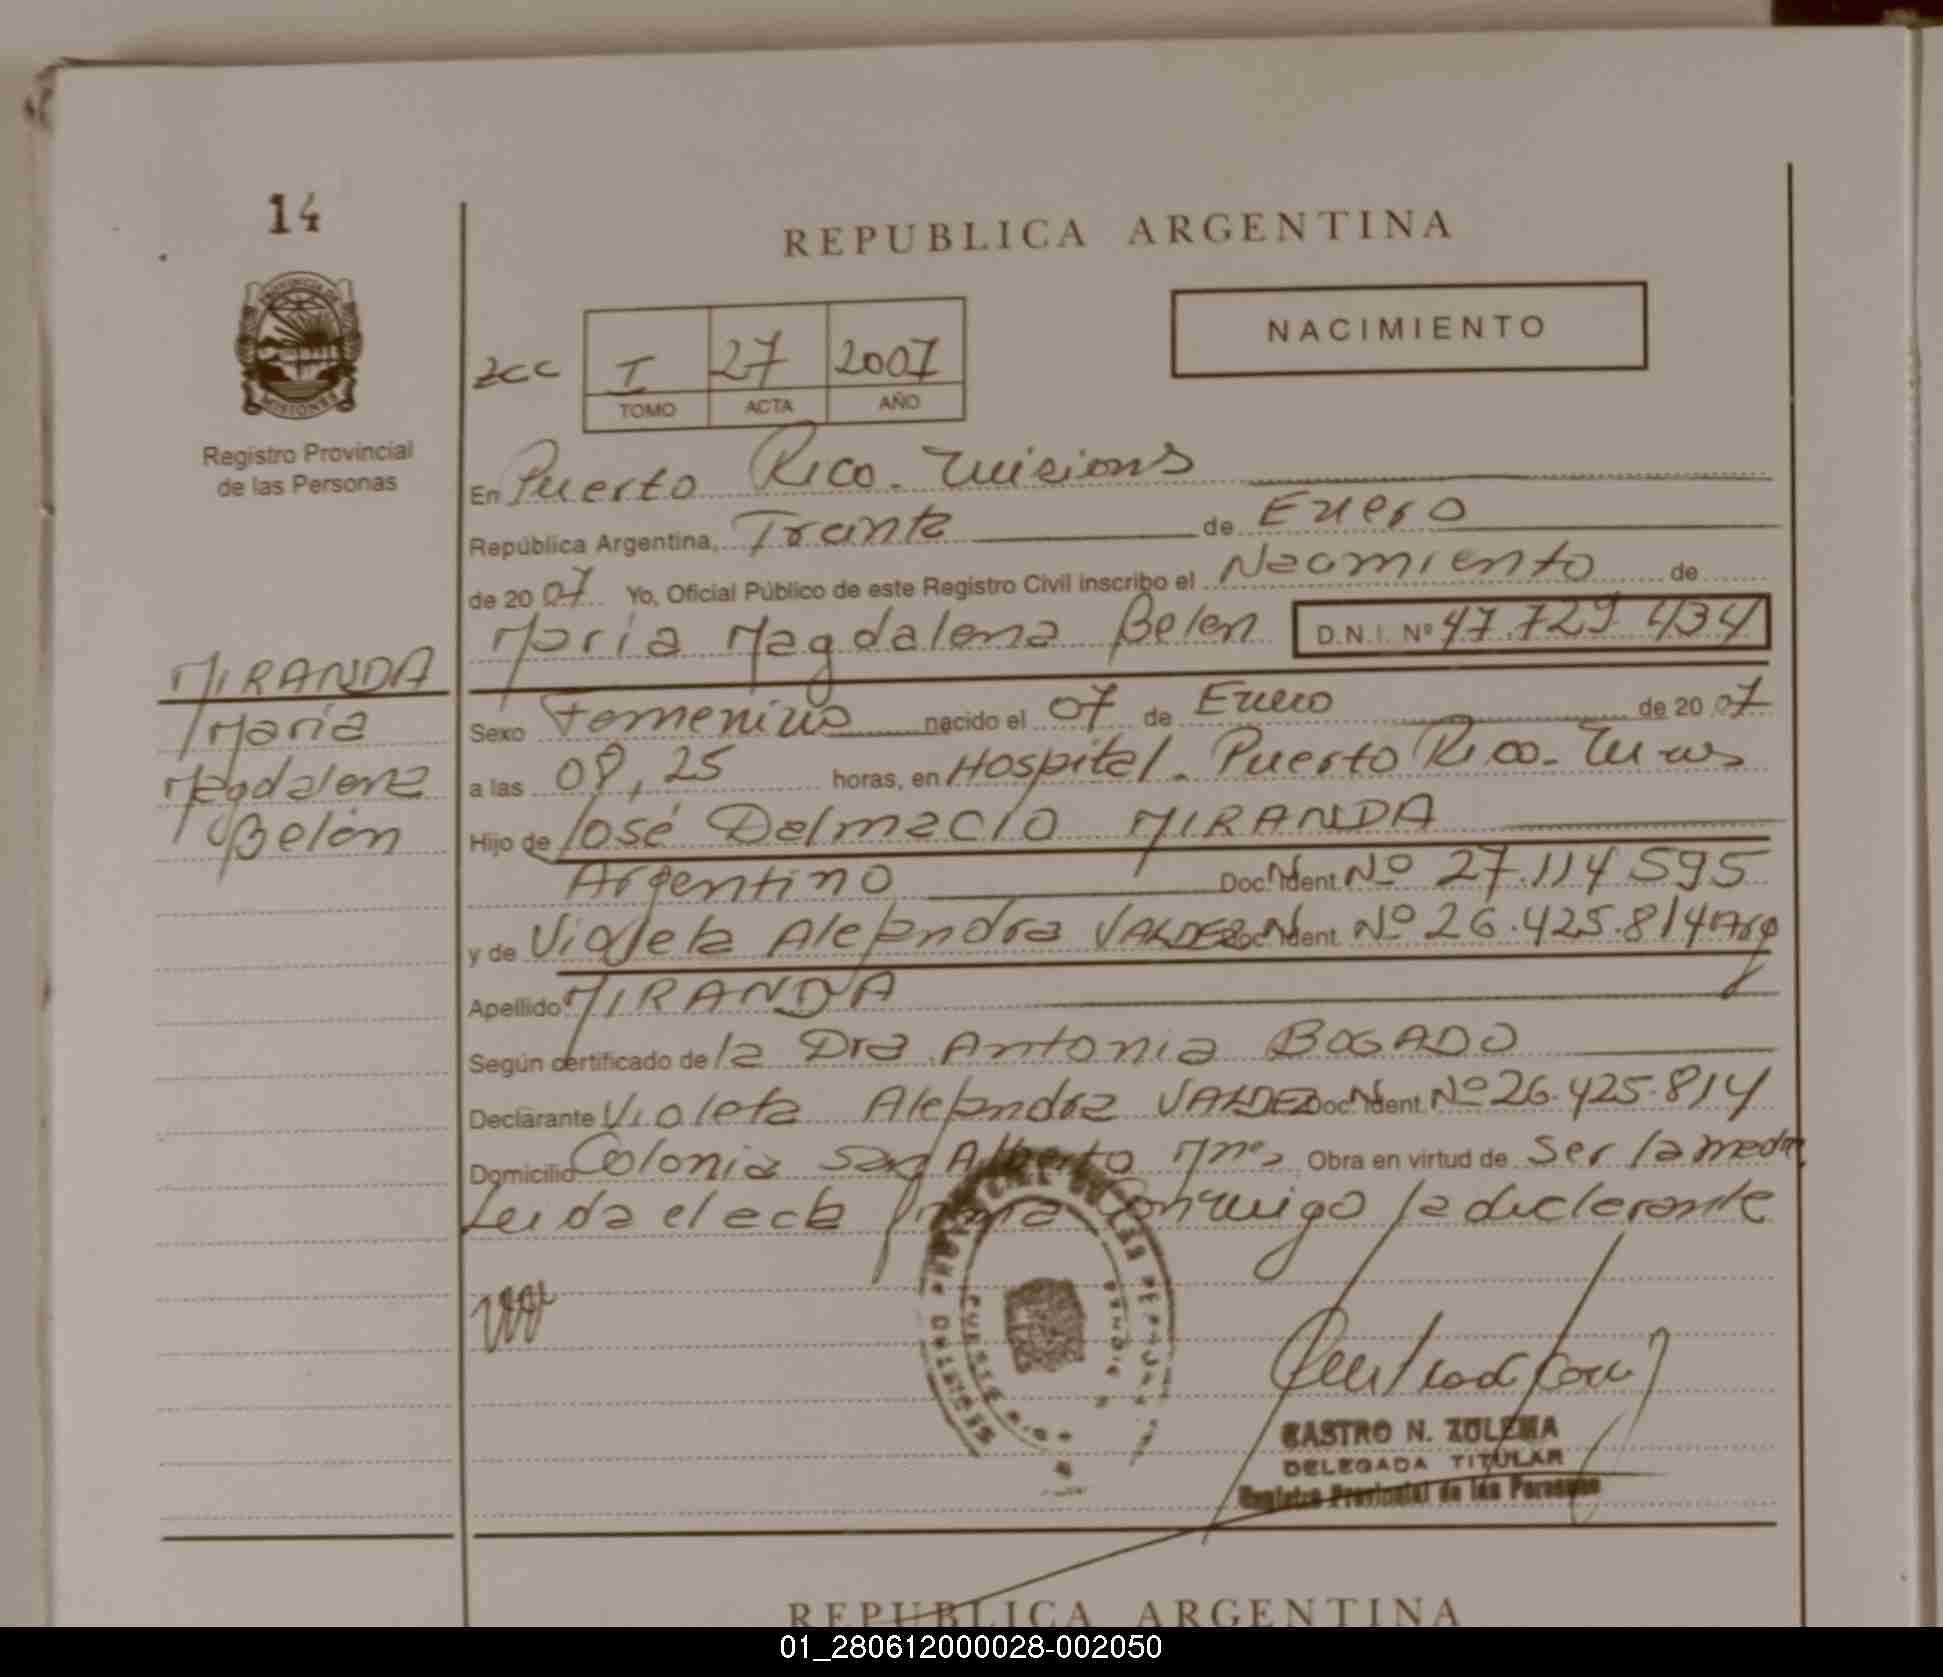 14
REPUBLICA ARGENTINA
NACIMIENTO
PROVINCIA DE
MISIONES
Registro Provincial
de las Personas
2cc I 27 2007
TOMO ACTA AÑO
En Puerto Rico - Misiones
República Argentina, Treinta de Enero
de 2007 Yo, Oficial Público de este Registro Civil inscribo el Nacimiento de
María Magdalena Belen D.N.I. Nº 47.729 434
MIRANDA
María
Magdalena
Belén
Sexo Femenino nacido el 07 de Enero de 2007
a las 08,25 horas, en Hospital - Puerto Rico - Mnes
Hijo de José Dalmacio MIRANDA
Argentino Doc. Ident. Nº 27.114 595
y de Violeta Alejandra VALDEZ Doc. Ident. Nº 26.425.814 Arg
Apellido MIRANDA
Según certificado de la Dra Antonia BOGADO
Declarante Violeta Alejandra VALDEZ Doc. Ident. Nº 26.425.814
Domicilio Colonia San Alberto Mnes Obra en virtud de ser la madre
Leida el acta firma conmigo la declarante
CASTRO N. ZULEMA
DELEGADA TITULAR
Registro Provincial de las Personas
REPUBLICA ARGENTINA
01_280612000028-002050